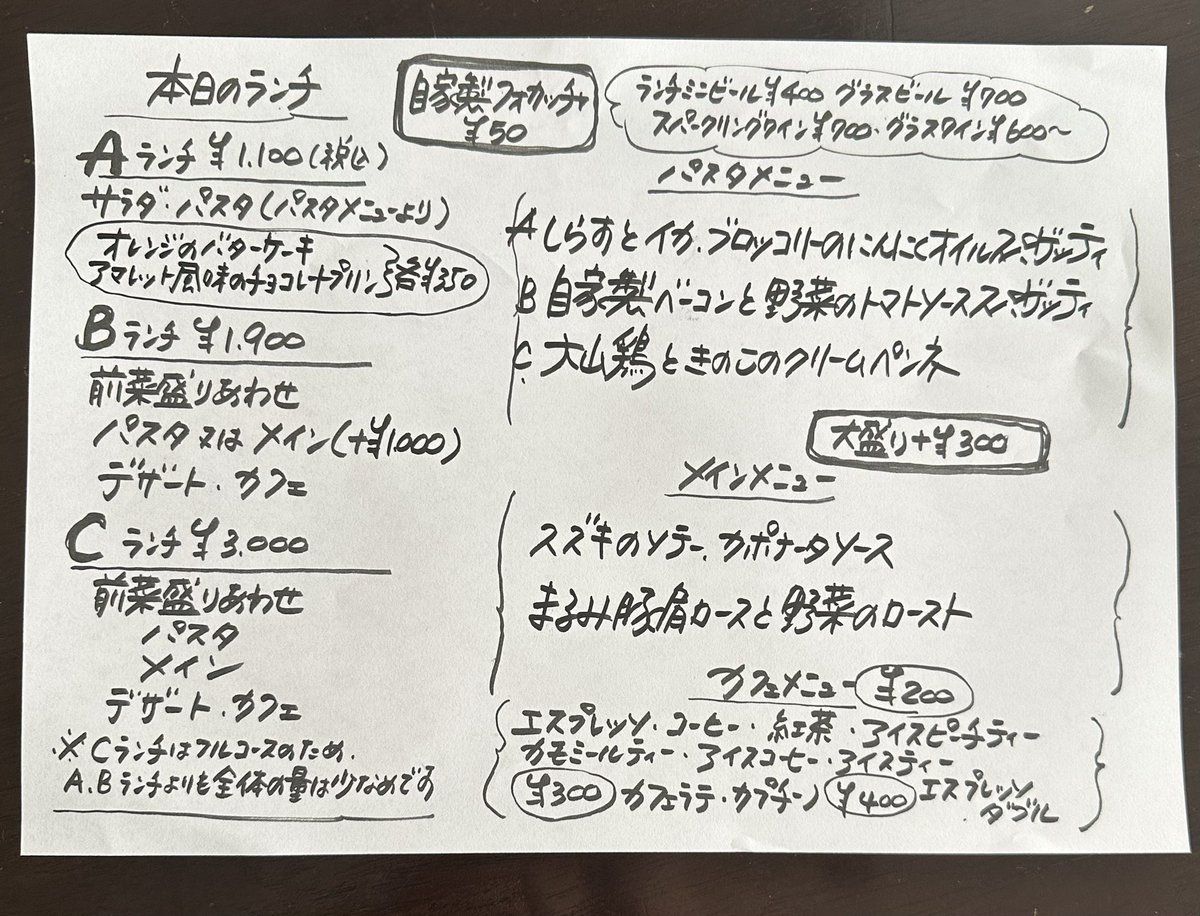 本日のランチ
Aランチ ¥1.100(税込)
サラダ・パスタ(パスタメニューより)
オレンジのバターケーキ
アマレット風味のチョコレートプリン}各¥350
Bランチ ¥1.900
前菜盛りあわせ
パスタ又はメイン(+¥1.000)
デザート・カフェ
Cランチ ¥3.000
前菜盛りあわせ
パスタ
メイン
デザート・カフェ
※Cランチはフルコースのため、
A.Bランチよりも全体の量は少なめです
自家製フォカッチャ
¥50
ランチミニビール¥400 グラスビール ¥700
スパークリングワイン¥700・グラスワイン¥600〜
パスタメニュー
A しらすとイカ、ブロッコリーのにんにくオイルスパゲッティ
B 自家製ベーコンと野菜のトマトソーススパゲッティ
C. 大山鶏ときのこのクリームペンネ
大盛り+¥300
メインメニュー
スズキのソテー、カポナータソース
まるみ豚肩ロースと野菜のロースト
カフェメニュー ¥200
エスプレッソ・コーヒー・紅茶・アイスピーチティー
カモミールティー・アイスコーヒー・アイスティー
¥300 カフェラテ・カプチーノ ¥400 エスプレッソ
ダブル